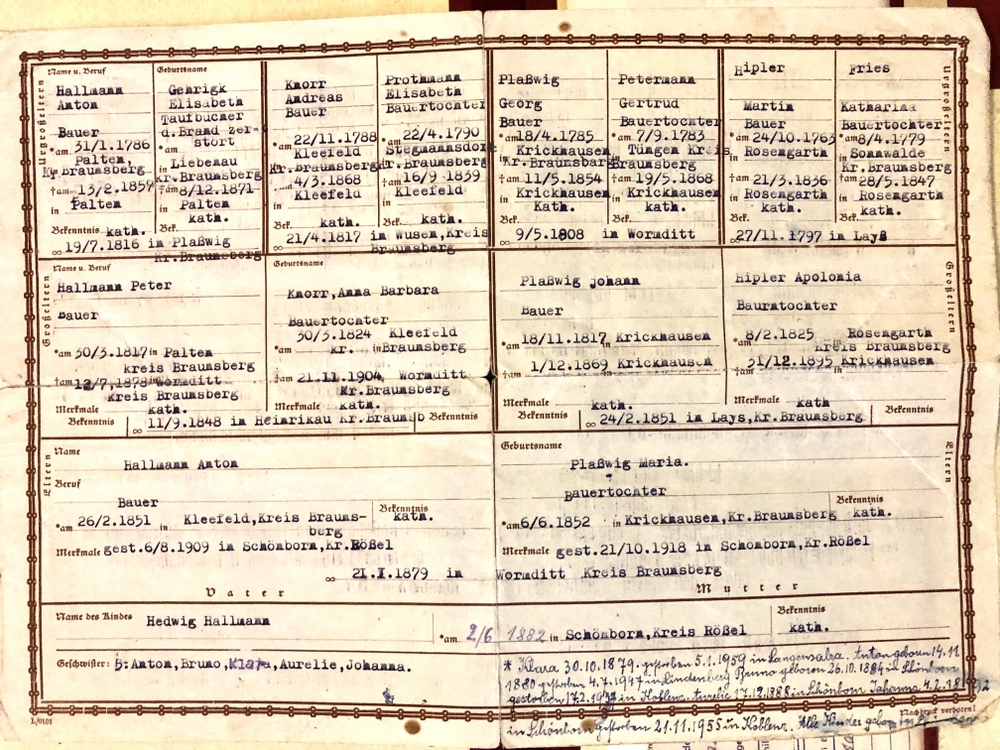 Urgroßeltern
Name u. Beruf
Hallmann
Anton
Bauer
*am 31/1.1786
Palten,
Kr.Braunsberg
†am 13/2.1857
in Palten
Bekenntnis kath.
∞ 19/7.1816 in Plaßwig
Kr.Braunsberg
Geburtsname
Gehrigk
Elisabeth
Taufbücher
d.Brand zer-
stört
*am
in Liebenau
Kr.Braunsberg
†am 8/12.1871
in Palten
kath.
Knorr
Andreas
Bauer
*am 22/11.1788
Kleefeld
in Kr.Braunsberg
4/3.1868
Kleefeld
in
Bek. kath.
∞ 21/4.1817 in Wusen,Kreis
Braunsberg
Prothmann
Elisabeth
Bauertochter
*am 22/4.1790
Stegmannsdorf
in Kr.Braunsberg
†am 16/9 1839
Kleefeld
in
Bek. kath.
Plaßwig
Georg
Bauer
*am 18/4.1785
Krickhausen
in Kr.Braunsbarg
†am 11/5.1854
in Krickhausen
Kath.
Bek.
∞ 9/5.1808 in Wormditt
Petermann
Gertrud
Bauertochter
*am 7/9.1783
Tüngen Kreis
in Braunsberg
†am 19/5.1868
in Krickhausen
Kath.
Bek.
Hipler
Martin
Bauer
*am 24/10.1763
in Rosengarth
†am 21/3.1836
in Rosengarth
kath.
Bek.
∞ 27/11.1797 in Layß
Fries
Katharina
Bauertochter
*am 8/4.1779
in Sonnwalde
Kr.Braunsberg
†am 28/5.1847
in Rosengarth
kath.
Bek.
Urgroßeltern
Großeltern
Name u. Beruf
Hallmann Peter
Bauer
*am 30/3.1817 in Palten
kreis Braunsberg
†am 12/7.1878 in Wormditt
kreis Braunsberg
Merkmale kath.
Bekenntnis
∞ 11/9.1848 in Heinrikau Kr.Braunsb
Geburtsname
Knorr,Anna Barbara
Bauertochter
*am 30/3.1824 Kleefeld
kr. in Braunsberg
†am 21.11.1904, Wormditt
Kr.Braunsberg
Merkmale kath.
Bekenntnis
Plaßwig johann
Bauer
*am 18/11.1817 Krickhausen
†am 1/12.1869 Krickhausen
Merkmale kath.
Bekenntnis
∞ 24/2.1851 in Lays,Kr.Braunsberg
Hipler Apolonia
Baurntochter
*am 8/2.1825 Rosengarth
kreis Braunsberg
†am 31/12.1895 in Krickhausen
Merkmale kath
Bekenntnis
Großeltern
Eltern
Name
Hallmann Anton
Beruf
Bauer
*am 26/2.1851 in Kleefeld,Kreis Brauns-
berg
Bekenntnis
kath.
Merkmale gest.6/8.1909 in Schönborn,Kr.Rößel
∞ 21.I.1879 in Wormditt Kreis Braunsberg
Vater
Geburtsname
Plaßwig Maria.
Bauertochter
*am 6/6.1852 in Krickhausen,Kr.Braunsberg
Bekenntnis
kath.
Merkmale gest.21/10.1918 in Schönborn,Kr.Rößel
Mutter
Eltern
Name des Kindes Hedwig Hallmann
*am 2/6 1882 in Schönborn,Kreis Rößel
Bekenntnis
kath.
Geschwister: B:Anton,Bruno,Klara,Aurelie,Johanna.
* Klara 30.10.1879. gestorben 5.1.1959 in Langensalza. Anton geboren 14.11
1880 gestorben 4.7.1947 in Lindenberg Bruno geboren 26.10.1884 in Schönborn
gestorben in Koblenz. Aurelie 17.12.1888 in Schönborn Johanna 4.2.
in Schönborn gestorben 21.11.1955 in Koblenz. Alle Kinder geboren
Nachdruck verboten!
L/0101